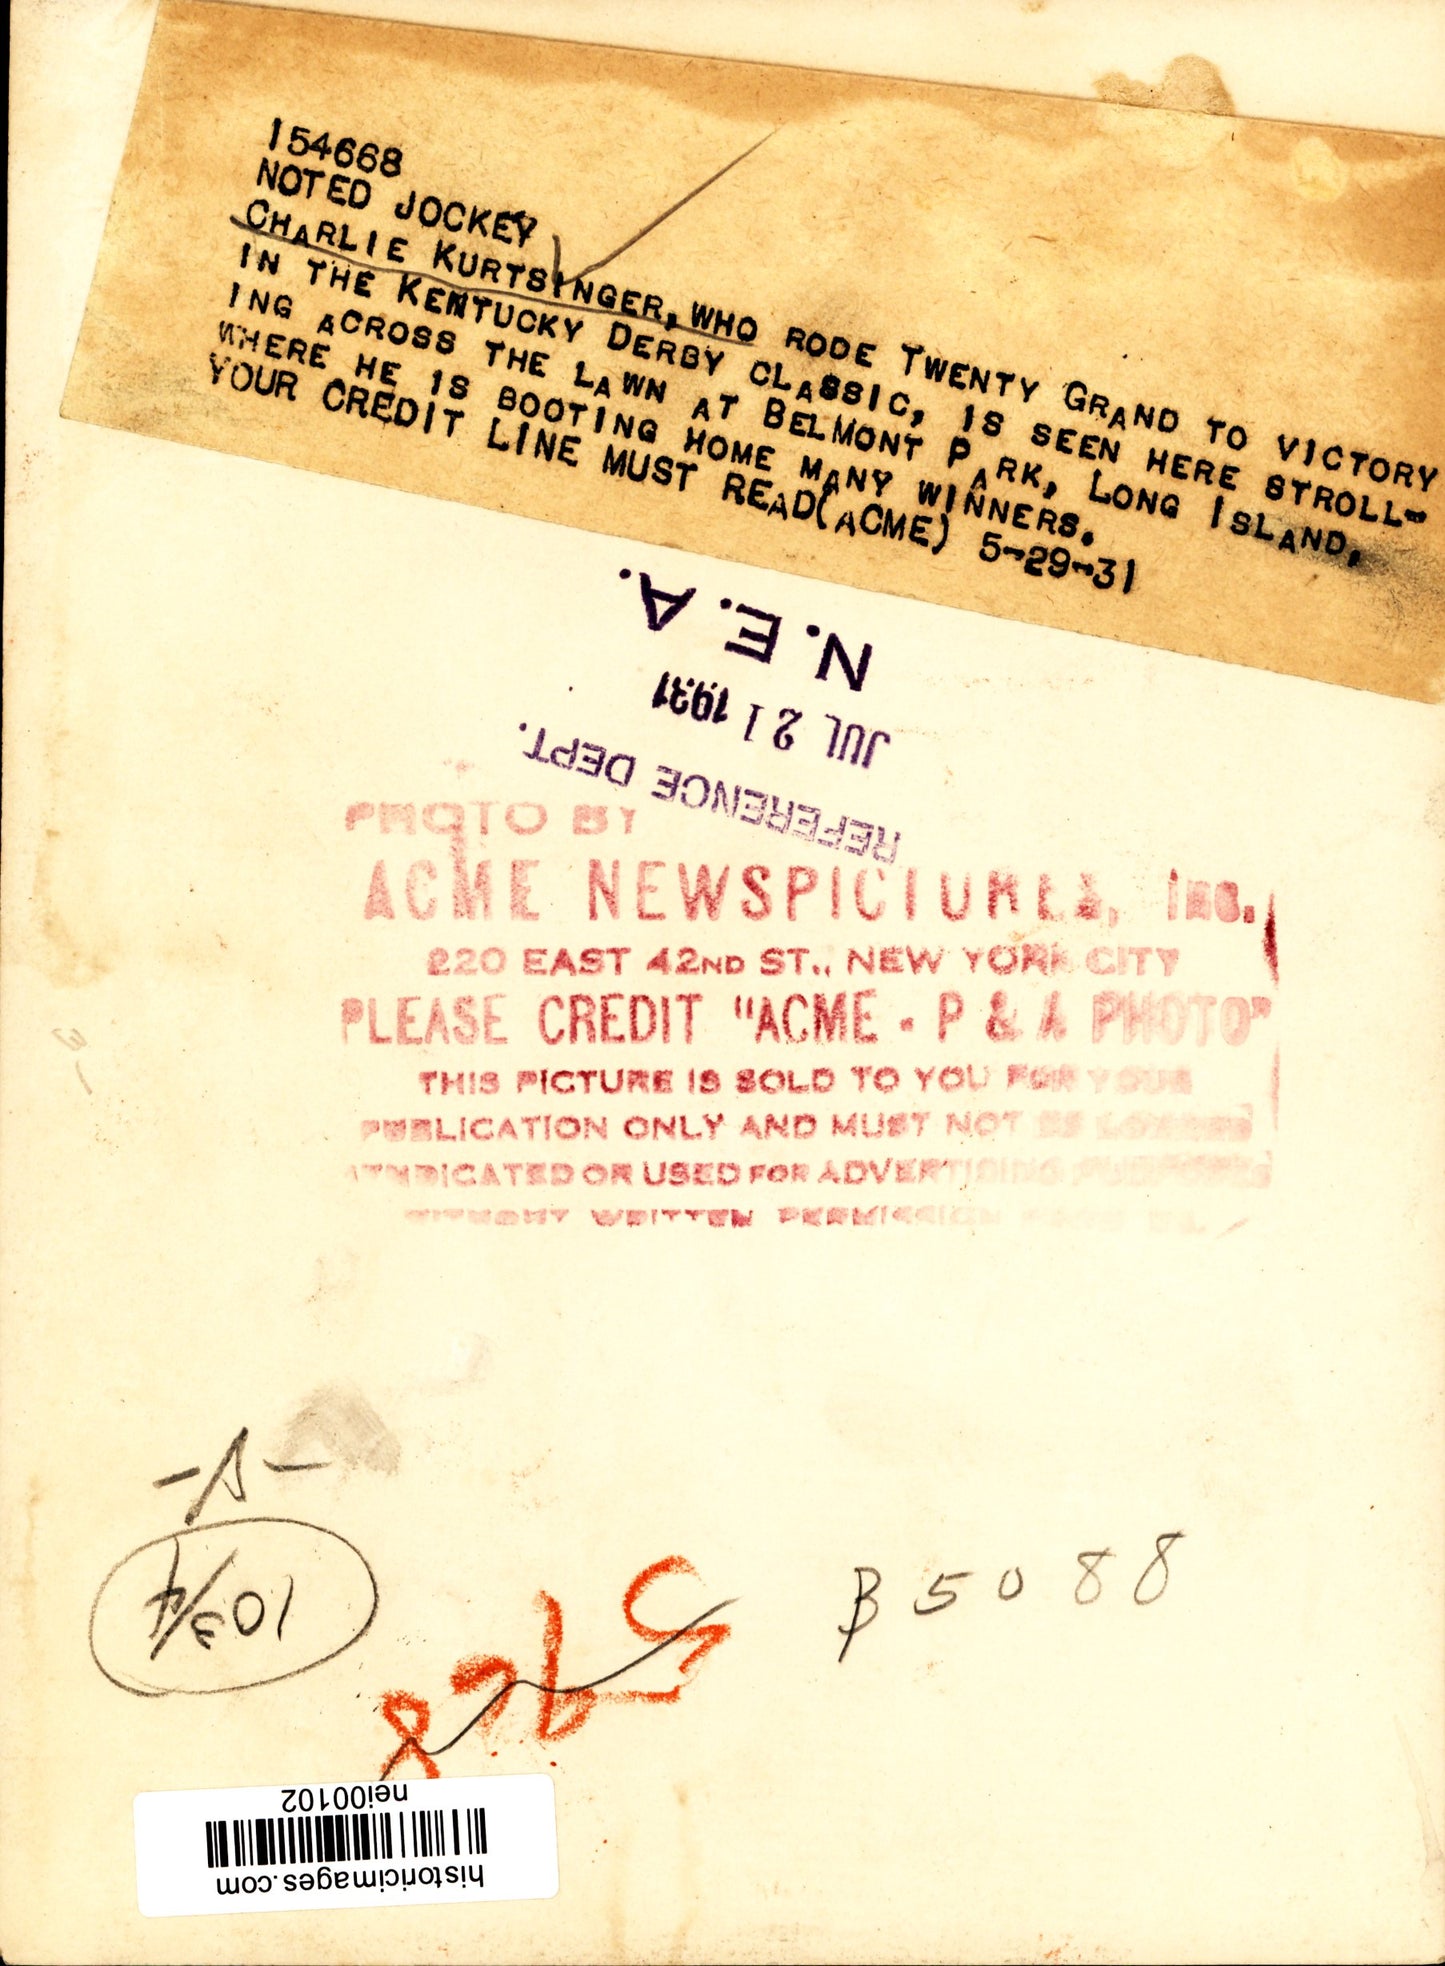 154668
NOTED JOCKEY
CHARLIE KURTSINGER, WHO RODE TWENTY GRAND TO VICTORY
IN THE KENTUCKY DERBY CLASSIC, IS SEEN HERE STROLL-
ING ACROSS THE LAWN AT BELMONT PARK, LONG ISLAND,
WHERE HE IS BOOTING HOME MANY WINNERS.
YOUR CREDIT LINE MUST READ(ACME) 5-29-31
N. E. A.
JUL 21 1931
REFERENCE DEPT.
PHOTO BY
ACME NEWSPICTURES, INC.
220 EAST 42ND ST., NEW YORK CITY
PLEASE CREDIT "ACME - P & A PHOTO"
THIS PICTURE IS SOLD TO YOU FOR YOUR
PUBLICATION ONLY AND MUST NOT BE LOANED
SYNDICATED OR USED FOR ADVERTISING PURPOSES
WITHOUT WRITTEN PERMISSION FROM US.
10 3/4
B5088
nei00102
historicimages.com